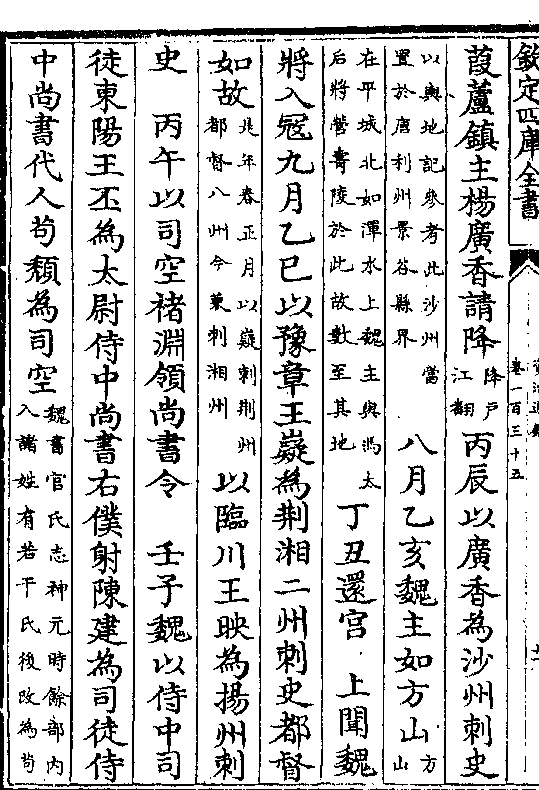 欽定四庫全書
資治通鑑
卷一百三十五
葭蘆鎮主楊廣香請降降戸江翻丙辰以廣香為沙州刺史
以輿地記參考此沙州當置於唐利州景谷縣界八月乙亥魏主如方山方山
在平城北如渾水上魏主與馮太后將營壽陵於此故數至其地丁丑還宮 上聞魏
將入冦九月乙巳以豫章王嶷為荆湘二州刺史都督
如故是年春正月以嶷刺荆州都督八州今兼刺湘州以臨川王映為揚州刺
史 丙午以司空褚淵領尚書令 壬子魏以侍中司
徒東陽王丕為太尉侍中尚書右僕射陳建為司徒侍
中尚書代人苟頹為司空魏書官氏志神元時餘部内入諸姓有若干氏後改為苟